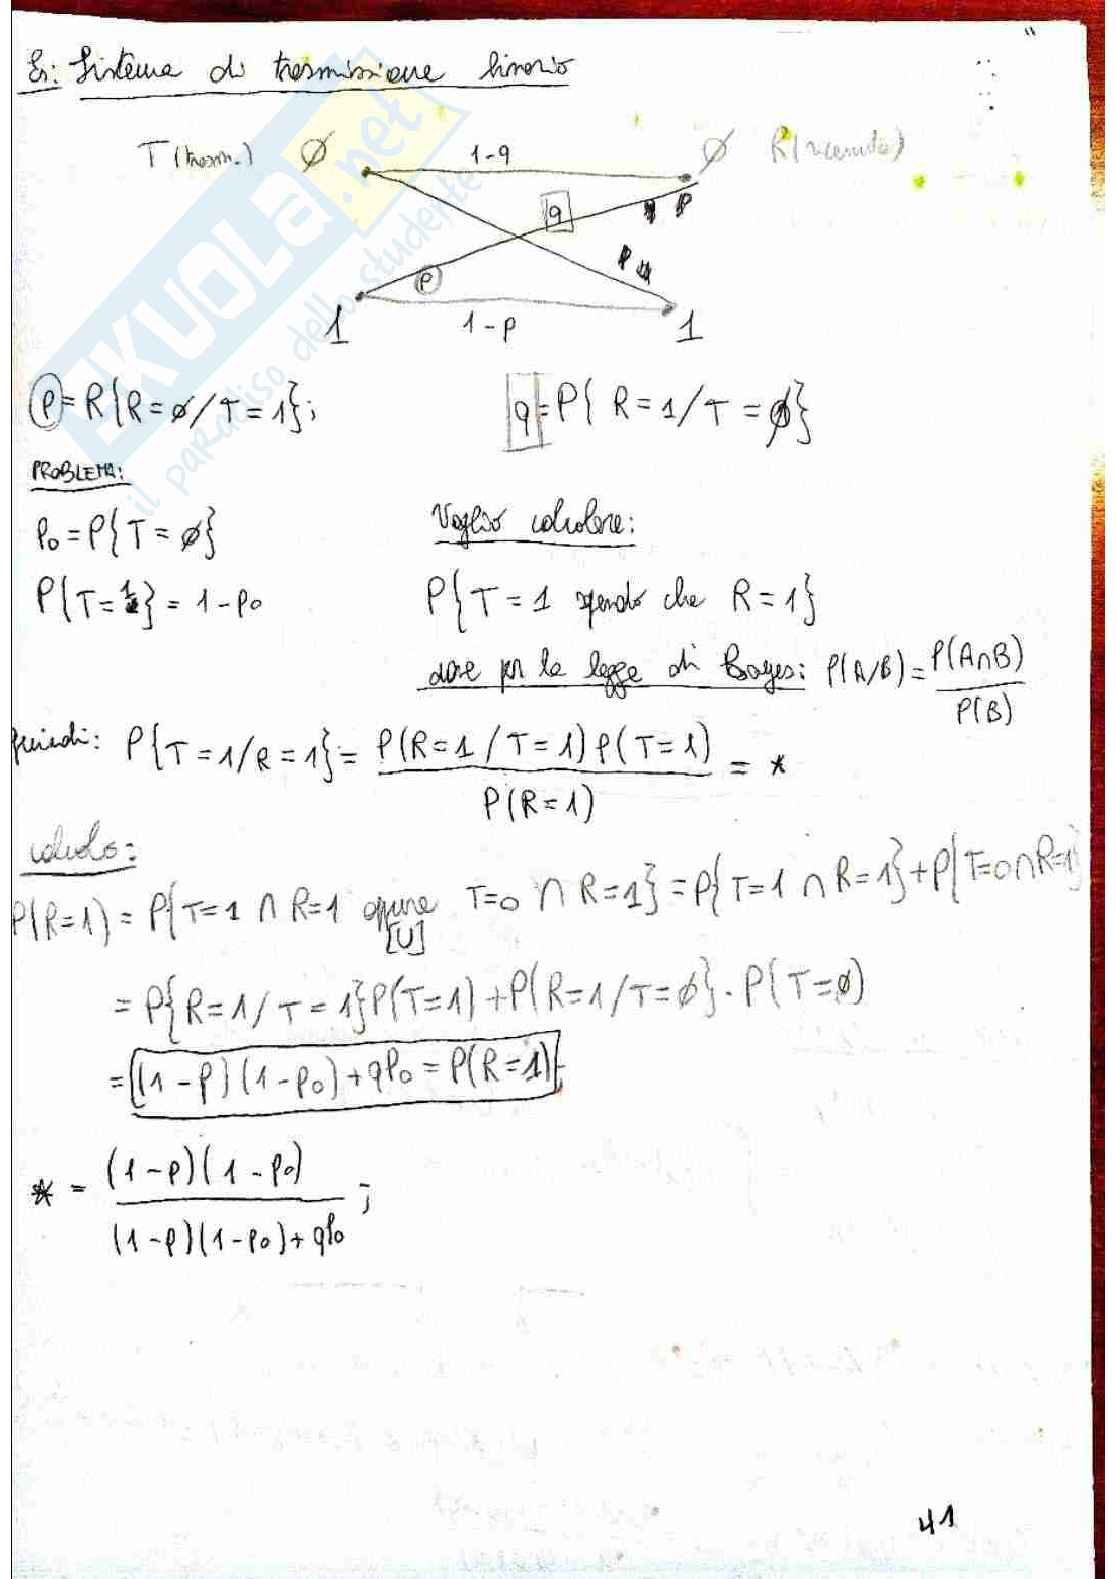 Es: Sistema di trasmissione binario
T (trasm.) Ø 1-q Ø R (ricevuto)
q p
p q
p
1 1-p 1
p = R{R=Ø/T=1}; q = P{R=1/T=Ø}
PROBLEMA:
P₀ = P{T=Ø} Voglio calcolare:
P{T=1} = 1-p₀ P{T=1 sapendo che R=1}
dove per la legge di Bayes: P(A/B) = P(A∩B)
P(B)
quindi: P{T=1/R=1} = P(R=1/T=1) P(T=1) = *
P(R=1)
calcolo:
P(R=1) = P{T=1 ∩ R=1 oppure T=0 ∩ R=1} = P{T=1 ∩ R=1} + P{T=0∩R=1}
[U]
= P{R=1/T=1}P(T=1) + P(R=1/T=Ø}. P(T=Ø)
= (1-p)(1-p₀) + qp₀ = P(R=1)
* = (1-p)(1-p₀) ;
(1-p)(1-p₀)+qp₀
41
SKUOLA.net
il paradiso dello studente